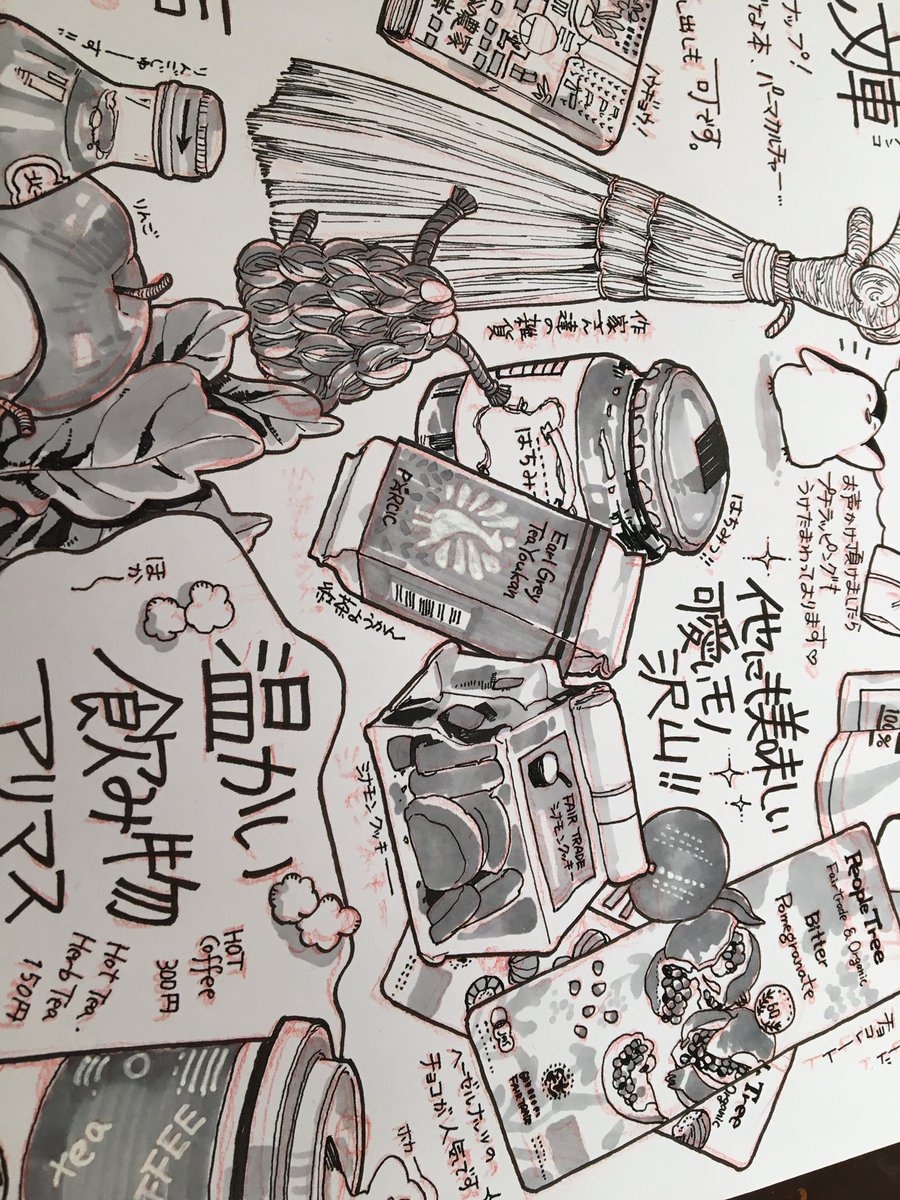 文庫
ナップ！
な本、パーマカルチャー…
出しも可です。
農家
お声かけ頂けましたら
プチラッピングも
うけたまわっております♡
他に美味しい
可愛いモノ
沢山!!
作家さん達の雑貨
はちみつ!!
はちみつ
Earl Grey
Tea Youkan
りんごじゅーす!!
りんご
100%
People Tree
Fair Trade & Organic
Bitter
Pomegranate
Organic
FAIR TRADE
シナモンクッキー
シナモンクッキー
ヘーゼルナッツの
チョコが人気です
ほかー
温かい
飲み物
アリマス
HOT
Coffee
300円
Hot Tea.
Herb Tea
tea